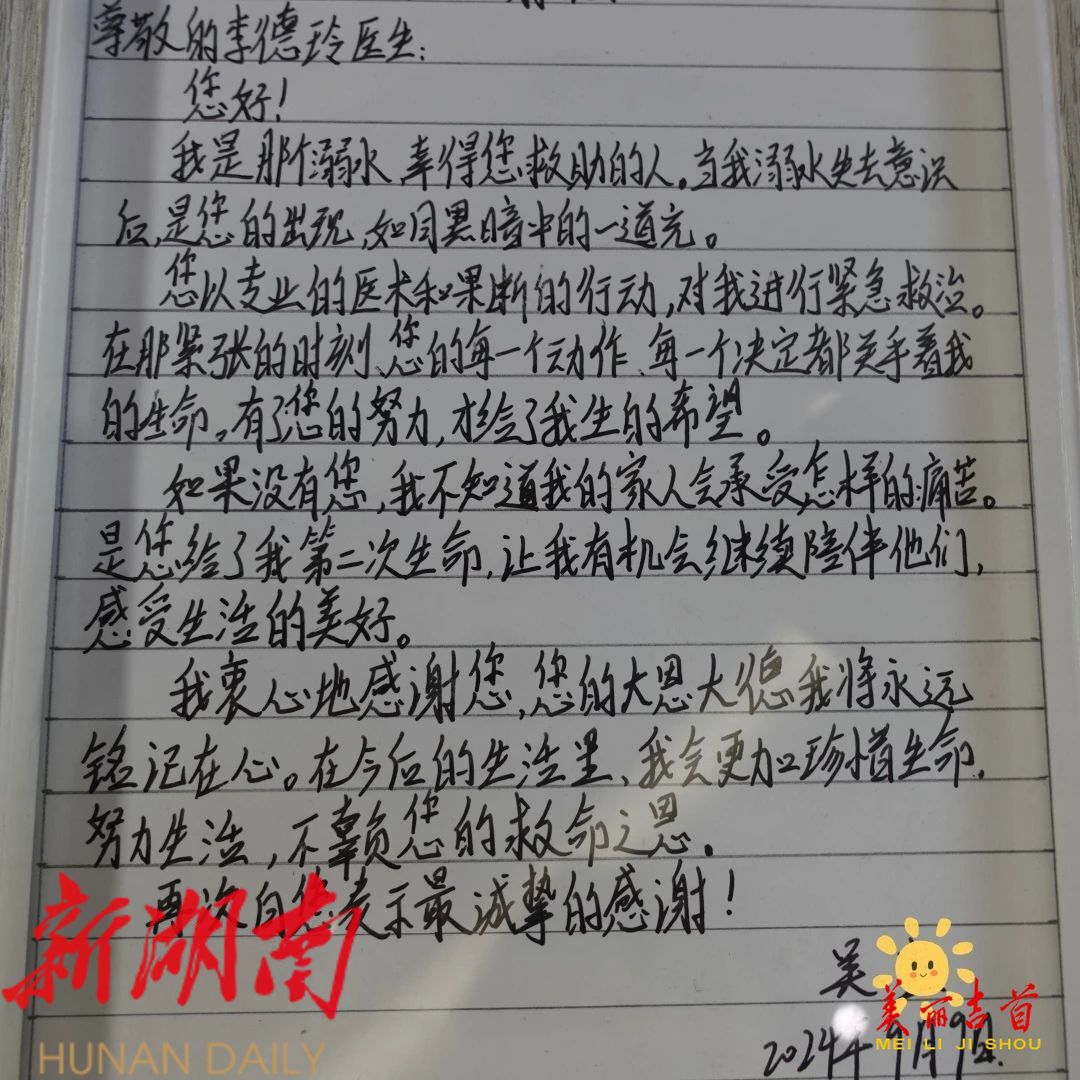 尊敬的李德玲医生：
您好！
我是那个溺水、幸得您救助的人。当我溺水失去意识
后，是您的出现，如同黑暗中的一道光。
您以专业的医术和果断的行动，对我进行紧急救治。
在那紧张的时刻、您的每一个动作、每一个决定都关乎着我
的生命。有了您的努力，才给了我生的希望。
如果没有您，我不知道我的家人会承受怎样的痛苦。
是您给了我第二次生命，让我有机会继续陪伴他们，
感受生活的美好。
我衷心地感谢您，您的大恩大德我将永远
铭记在心。在今后的生活里、我会更加珍惜生命，
努力生活，不辜负您的救命之恩。
再次向您表示最诚挚的感谢！
吴
2024年9月9日.
新湖南
HUNAN DAILY
美丽吉首
MEI LI JI SHOU